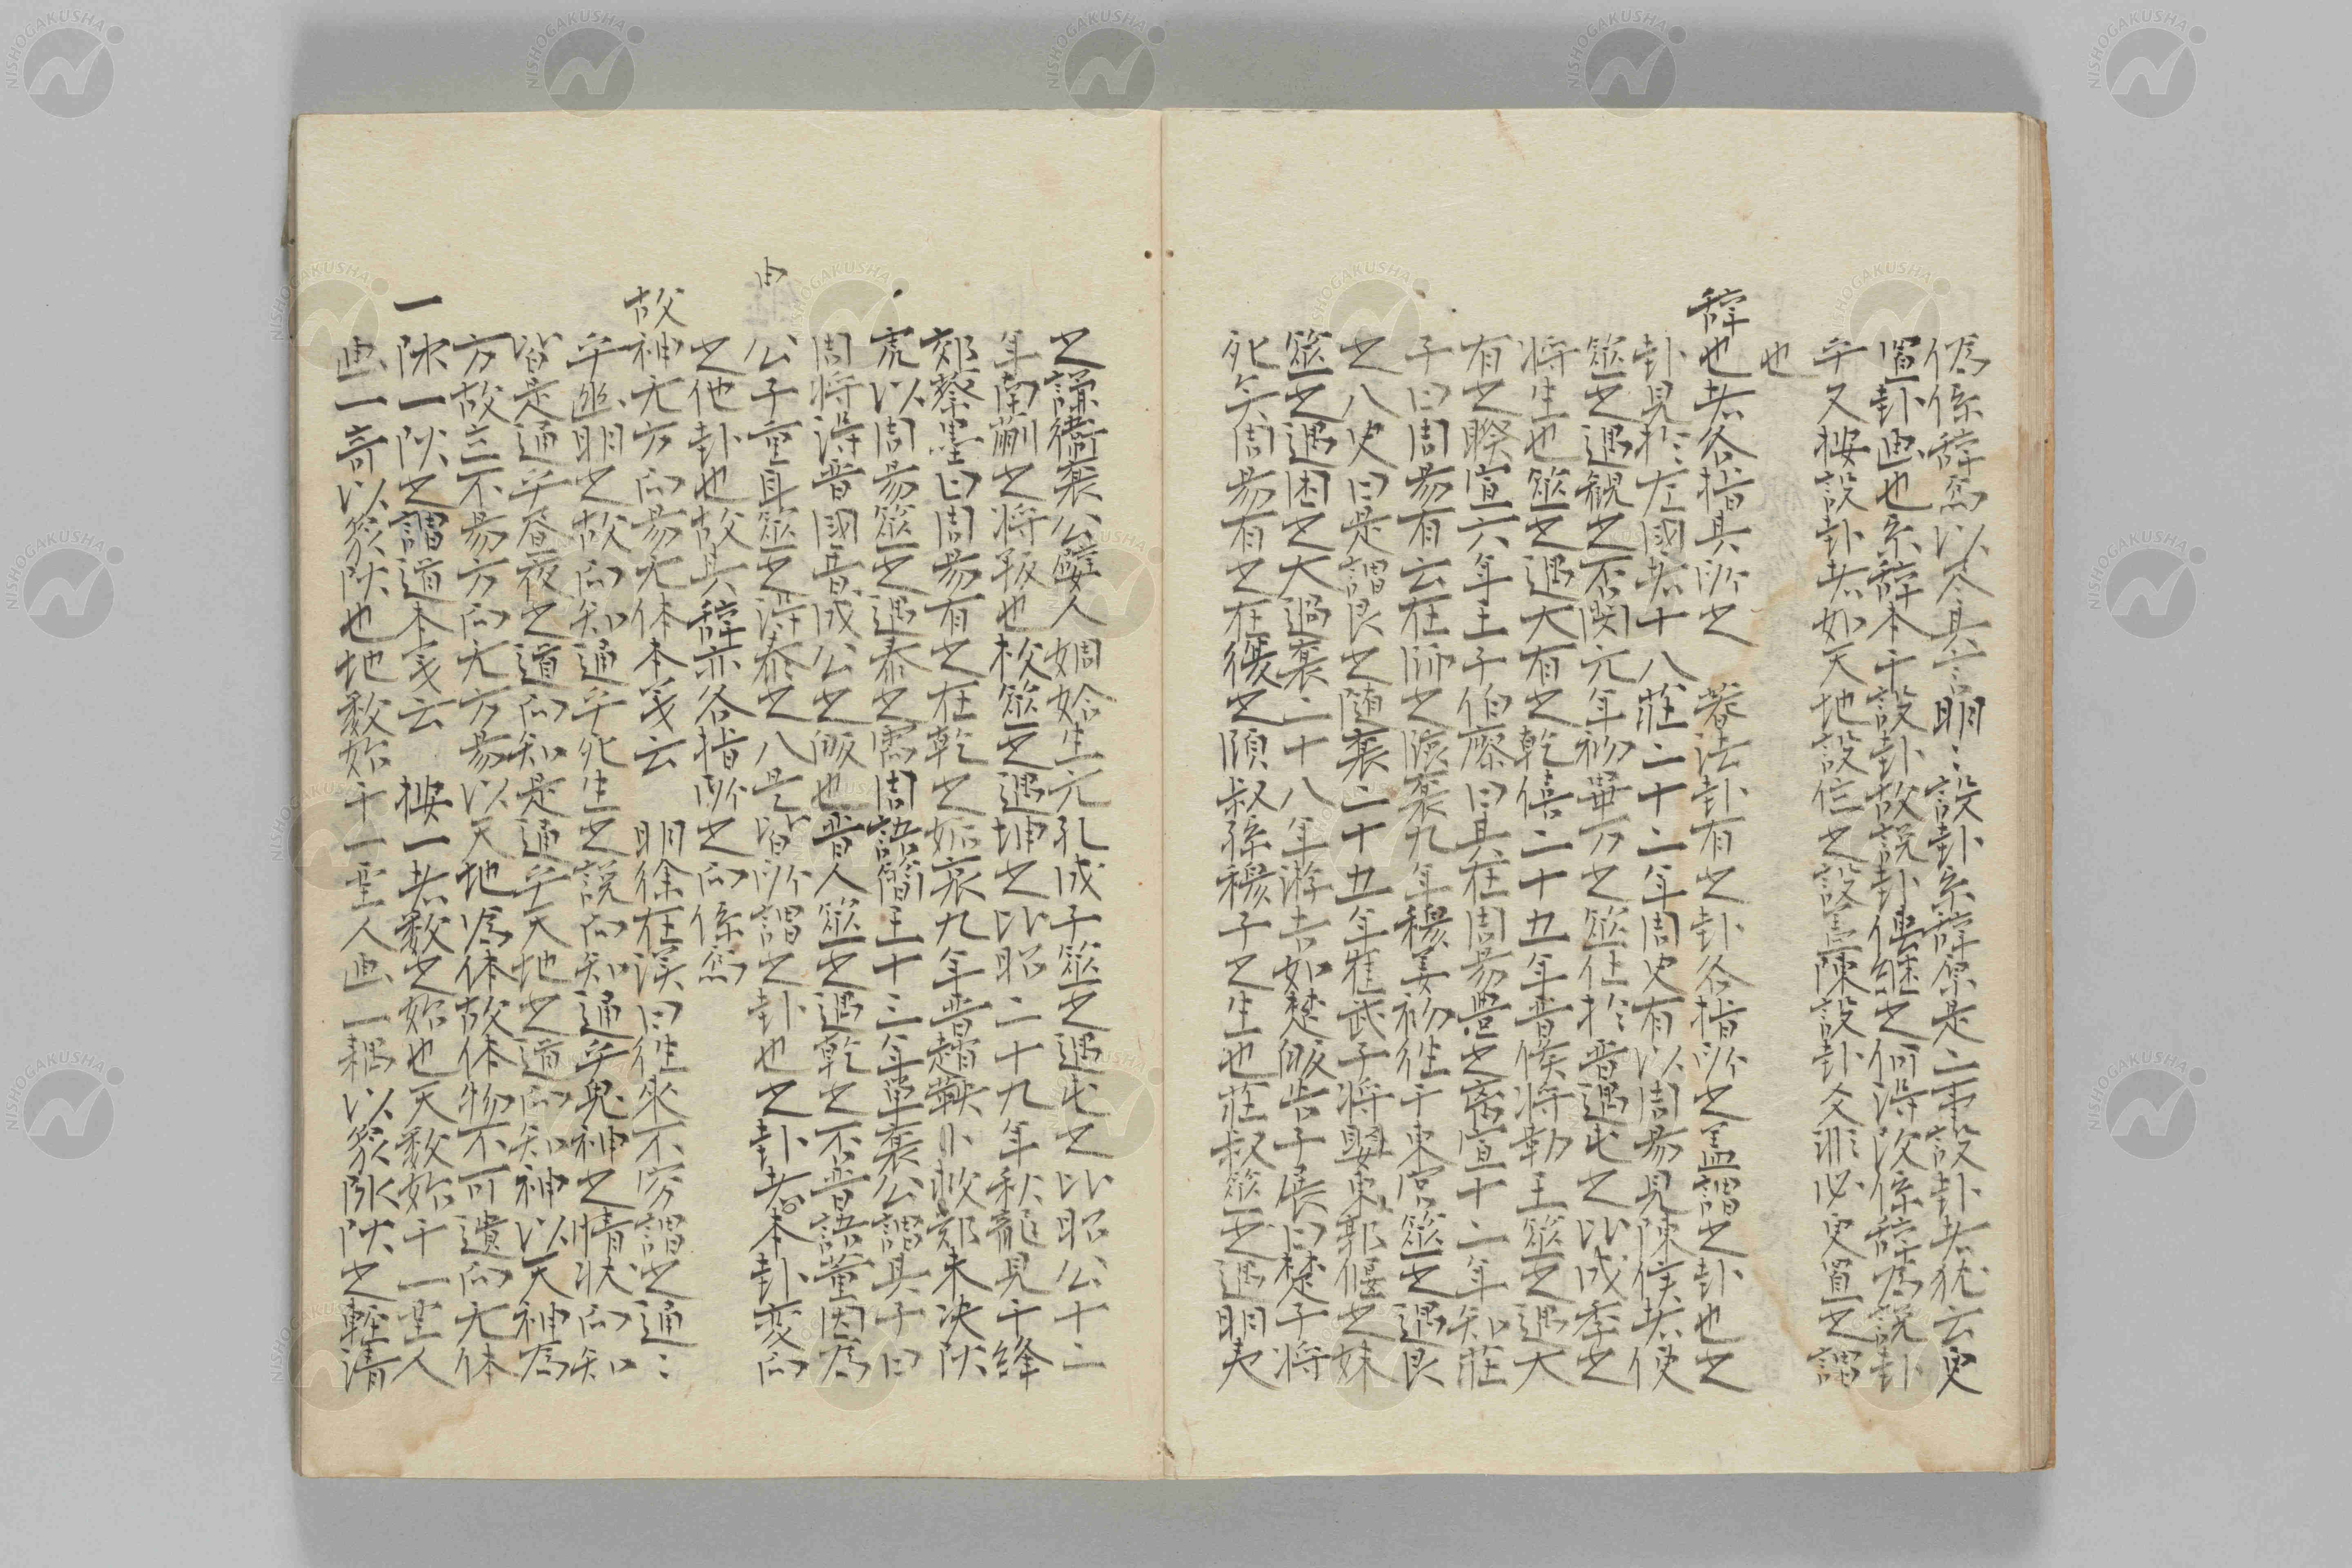 偽係辞焉以尽其言明〻設卦系辞原是二事設卦者猶云更
置卦画也系辞本于設卦故説卦伝継之何得改係辞為説卦
乎又按設卦者如天地設位之設言陳設卦爻非必更置之謂
也
辞也者各指其所之 蓍法卦有之卦各指所之蓋謂之卦也之
卦見於左國者十八荘二十二年周史有以周易見陳侯者使
筮之遇観之否閔元年初畢万之筮仕於晋遇屯之比成季之
将生也筮之遇大有之乾僖二十五年晋侯将勤王筮之遇大
有之睽宣六年王子伯廖曰其在周易豊之离宣十二年知荘
子曰周易有云在師之臨襄九年穆姜初徃于東宮筮之遇艮
之八史曰是謂艮之随襄二十五年崔武子将娶東郭偃之妹
筮之遇困之大過襄二十八年游吉如楚皈告子展曰楚子将
死矣周易有之在復之頤叔孫穆子之生也荘叔筮之遇明夷
之謙衛襄公嬖人婤姶生元孔成子筮之遇屯之比昭公十二
年南蒯之将叛也枚筮之遇坤之比昭二十九年秋龍見于絳
郊蔡墨曰周易有之在乾之姤哀九年晋趙鞅卜救鄭未决陽
虎以周易筮之遇泰之需周語簡王十三年単襄公謂其子曰
周将得晋國晋成公之皈也晋人筮之遇乾之否晋語董因為
公子重耳筮之得泰之八是皆所謂之卦也之卦者本卦変而
之他卦也故其辞亦各指所之而係焉
故神无方而易无体本義云 明徐在漢曰徃来不窮謂之通〻
乎幽明之故而知通乎死生之説而知通乎鬼神之情状而知
皆是通乎昼夜之道而知是通乎天地之道而知神以天神為
方故言不易方而无方易以天地為体故体物不可遺而无体
一陰一陽之謂道本義云 按一者数之始也天数始于一聖人
画一奇以象陽也地数始于二聖人画一耦以象陰陽之軽清